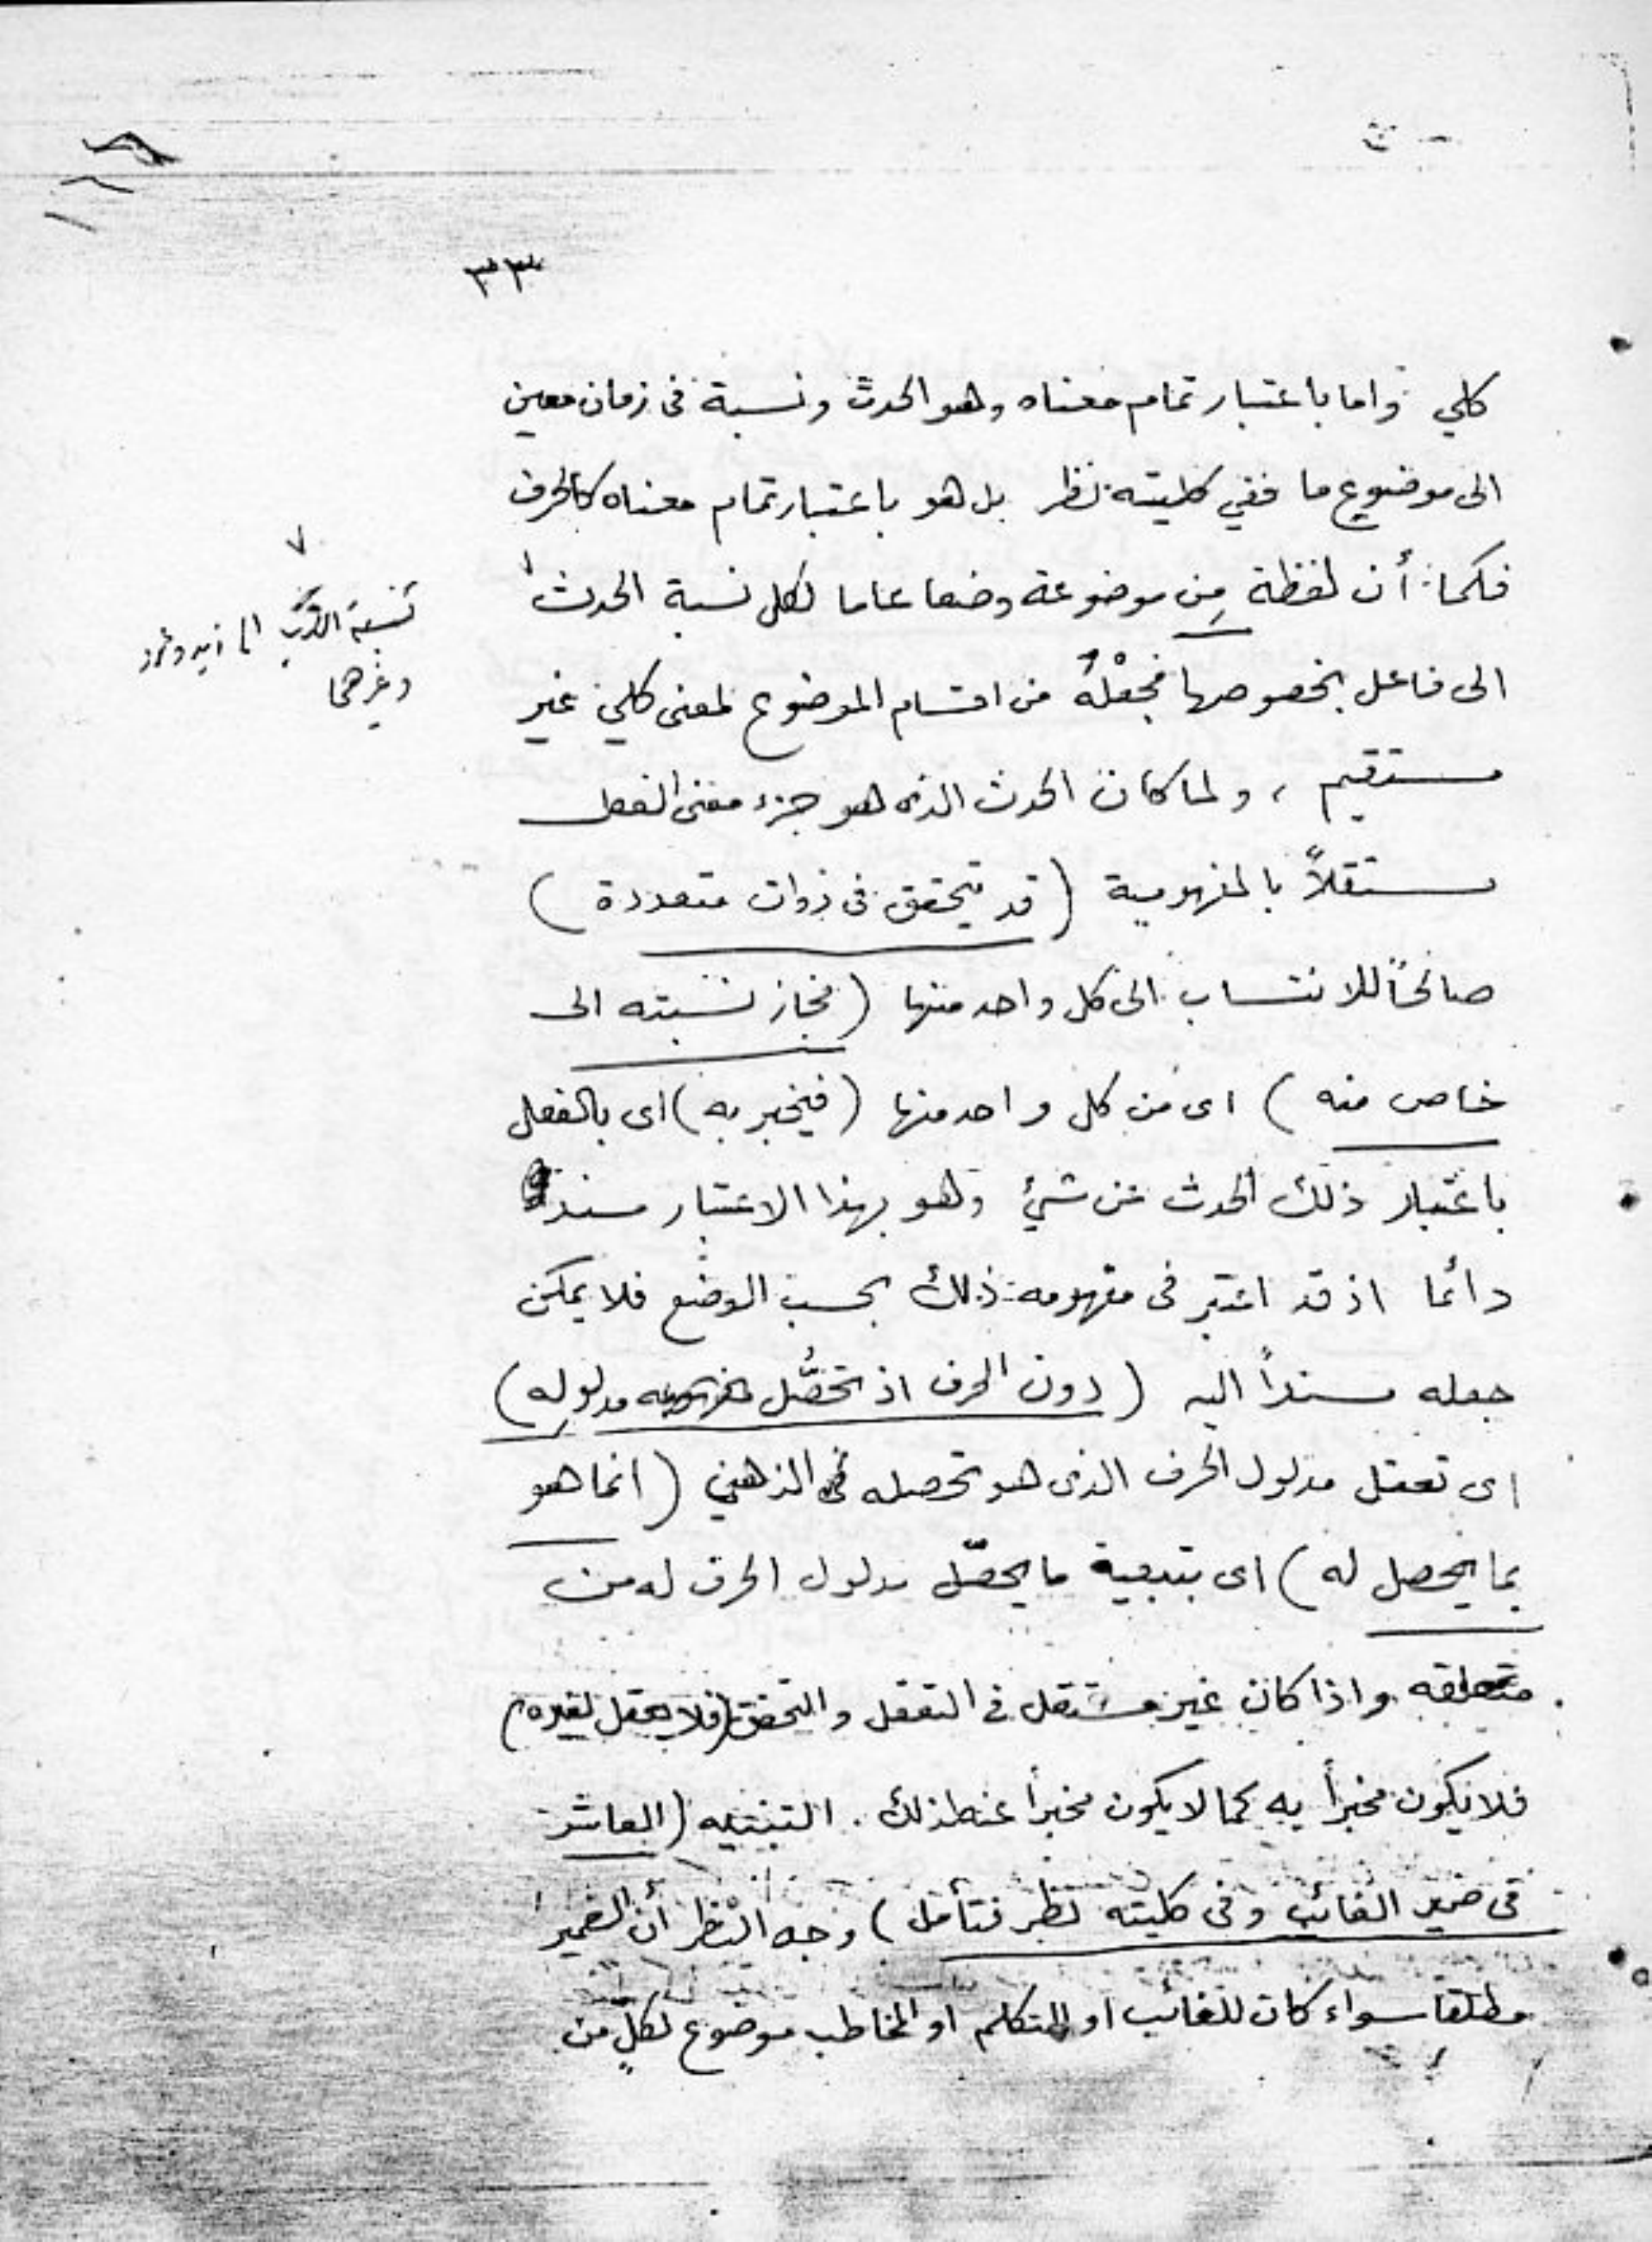 ٣٣
كلي واما باعتبار تمام معناه وهو الحدث ونسبة فى زمان معين
الى موضوع ما ففي كليته نظر بل هو باعتبار تمام معناه كالحرف
فكما أن لفظة مِن موضوعة وضعا عاما لكل نسبة الحدث
الى فاعل بخصوصها فجعْلهُ من اقسام الموضوع لمعنى كلي غير
مستقيم ، ولما كان الحدث الذى هو جزء معنى الفعل
مستقلاً بالمفهومية (قد يتحقق فى ذوات متعددة)
صالحاً للانتساب الى كل واحد منها (فجاز نسبته الى
خاص منه) اى من كل واحد منها (فيخبر به) اى بالفعل
باعتبار ذلك الحدث عن شيئ وهو بهذا الاعتبار مسند
دائما اذ قد اعتبر فى مفهومه ذلك بحسب الوضع فلا يمكن
جعله مسنداً اليه (دون الحرف اذ تحصُّل مدلولِه)
اى تعقل مدلول الحرف الذى هو تحصله الذهني (انما هو
بما يحصل له) اى بتبعية ما يحصّل مدلول الحرف له من
متعلقه واذا كان غير مستقل فى التعقل والتحقق (فلا يعقل لغيره)
فلا يكون مخبراً به كما لا يكون مخبراً عنه لذلك . التنبيه (العاشر
فى ضمير الغائب وفى كليته نظر فتأمل) وجه النظر أن الضمير
مطلقا سواء كان للغائب او للمتكلم او المخاطب موضوع لكلٍ من
كنسبة الى زيد وعمرو
وغيرهما